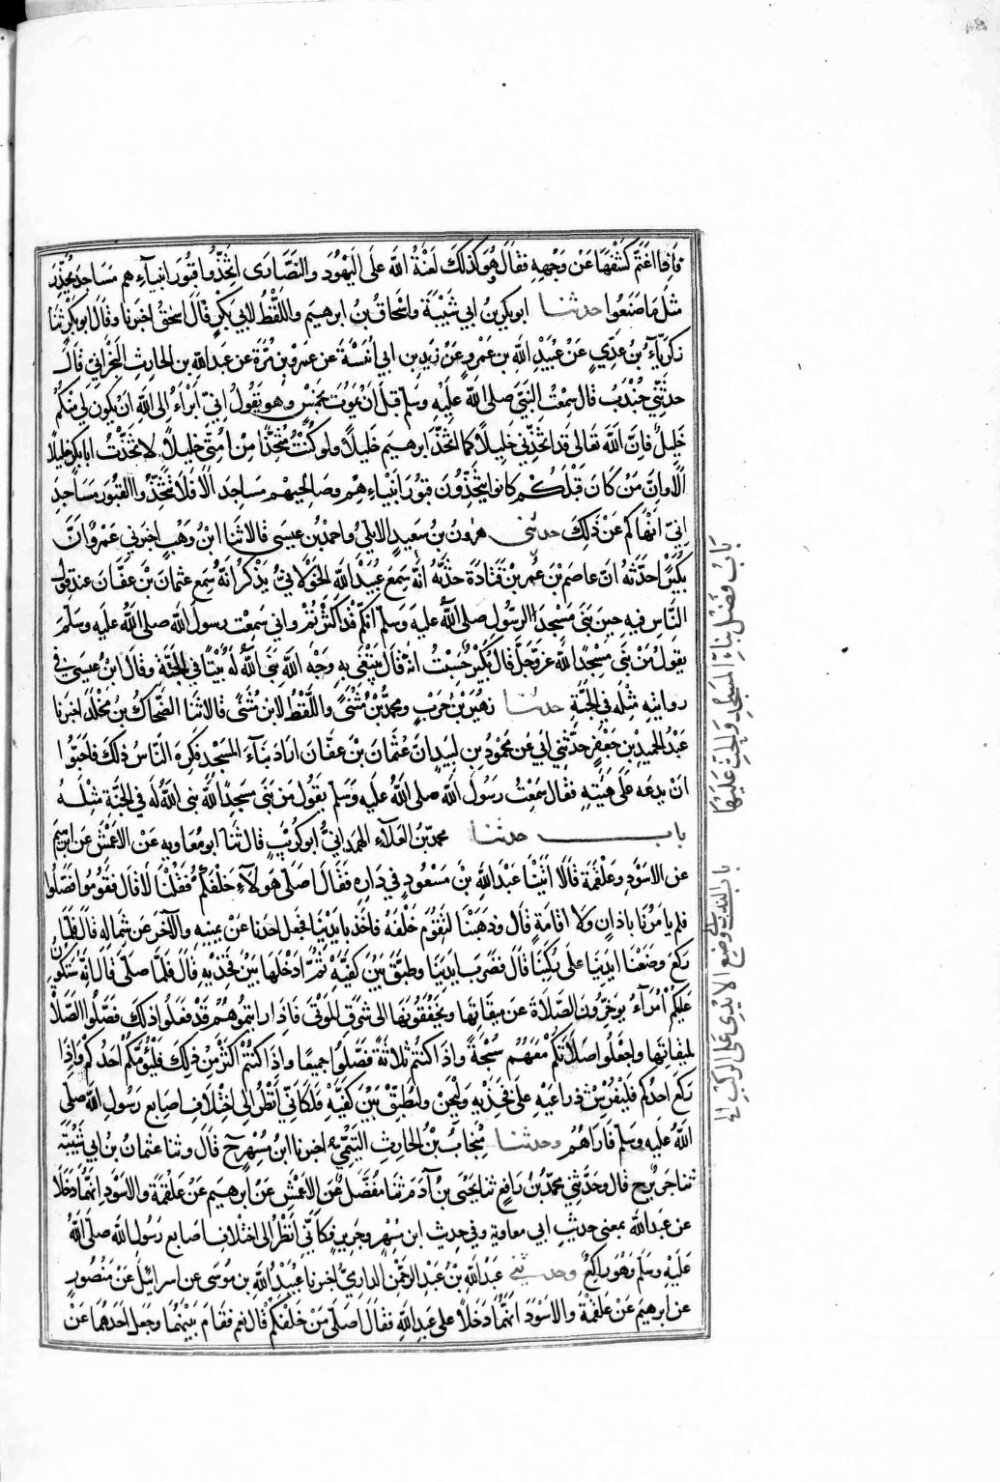 فاذا اغتم كشفها عن وجهه فقال وهو كذلك لعنة الله على اليهود والنصارى اتخذوا قبور انبياءهم مساجد يحذر
مثل ما صنعوا حدثنا ابو بكر بن ابي شيبة واسحاق بن ابرهيم واللفظ لابي بكر قال اسحق اخبرنا وقال ابو بكر ثنا
زكرياء بن عدي عن عبيد الله بن عمرو عن زيد بن ابي انيسة عن عمرو بن مرة عن عبد الله بن الحارث النجراني قال
حدثني جندب قال سمعت النبي صلى الله عليه وسلم قبل ان يموت بخمس وهو يقول اني ابراء الى الله ان يكون لي منكم
خليل فان الله تعالى قد اتخذني خليلا كما اتخذ ابرهيم خليلا ولو كنت متخذا من امتي خليلا لاتخذت ابا بكر خليلا
الا وان من كان قبلكم كانوا يتخذون قبور انبياءهم وصالحيهم مساجد الا فلا تتخذوا القبور مساجد
اني انهاكم عن ذلك حدثني هرون بن سعيد الايلي واحمد بن عيسى قالا ثنا ابن وهب اخبرني عمرو ان
بكيرا حدثه ان عاصم بن عمر بن قتادة حدثه انه سمع عبيد الله الخولاني يذكر انه سمع عثمان بن عفان عند قول
الناس فيه حين بنى مسجد الرسول صلى الله عليه وسلم انكم قد اكثرتم واني سمعت رسول الله صلى الله عليه وسلم
يقول من بنى مسجدا لله عز وجل قال بكير حسبت انه قال يبتغي به وجه الله بنى الله له بيتا في الجنة وقال ابن عيسى في
روايته مثله في الجنة حدثنا زهير بن حرب ومحمد بن مثنى واللفظ لابن مثنى قالا ثنا الضحاك بن مخلد اخبرنا
عبد الحميد بن جعفر حدثني ابي عن محمود بن لبيد ان عثمان بن عفان اراد بناء المسجد فكره الناس ذلك فاحبوا
ان يدعه على هيئته فقال سمعت رسول الله صلى الله عليه وسلم يقول من بنى مسجد الله بنى الله له في الجنة مثله
باب حدثنا محمد بن العلاء الهمداني ابو كريب قال ثنا ابو معاويه عن الاعمش عن ابرهيم
عن الاسود وعلقمة قالا اتينا عبد الله بن مسعود في داره فقال اصلى هولاء خلفكم فقلنا لا قال فقوموا فصلوا
فلم يامرنا باذان ولا اقامة قال وذهبنا لنقوم خلفه فاخذ بايدينا فجعل احدنا عن يمينه والآخر عن شماله قال فلما
ركع وضعنا ايدينا على ركبنا قال فضرب ايدينا وطبق بين كفيه ثم ادخلها بين فخذيه قال فلما صلى قال انه ستكون
عليكم امراء يوخرون الصلاة عن ميقاتها ويخنقونها الى شرق الموتى فاذا رايتموهم قد فعلوا ذلك فصلوا الصلاة
لميقاتها واجعلوا صلاتكم معهم سبحة واذا كنتم ثلاثة فصلوا جميعا واذا كنتم اكثر من ذلك فليؤمكم احدكم واذا
ركع احدكم فليفرش ذراعيه على فخذيه وليجن وليطبق بين كفيه فلكاني انظر الى اختلاف اصابع رسول الله صلى
الله عليه وسلم فاراهم وحدثنا منجاب بن الحارث التميمي اخبرنا ابن مسهر ح قال وثنا عثمان بن ابي شيبة
ثنا جرير ح قال وحدثني محمد بن رافع ثنا يحيى بن آدم ثنا مفضل عن الاعمش عن ابرهيم عن علقمة والاسود انهما دخلا
عن عبد الله بمعنى حديث ابي معاوية وفي حديث ابن مسهر وجرير فكاني انظر الى اختلاف اصابع رسول الله صلى الله
عليه وسلم وهو راكع وحدثني عبد الله بن عبد الرحمن الداري اخبرنا عبيد الله بن موسى عن اسرائيل عن منصور
عن ابرهيم عن علقمة والاسود انهما دخلا على عبد الله فقال اصلى من خلفكم قال نعم فقام بينهما وجعل احدهما عن
باب فضل بناء المسجد والحث عليها
باب الندب وضع الايدي على الركب